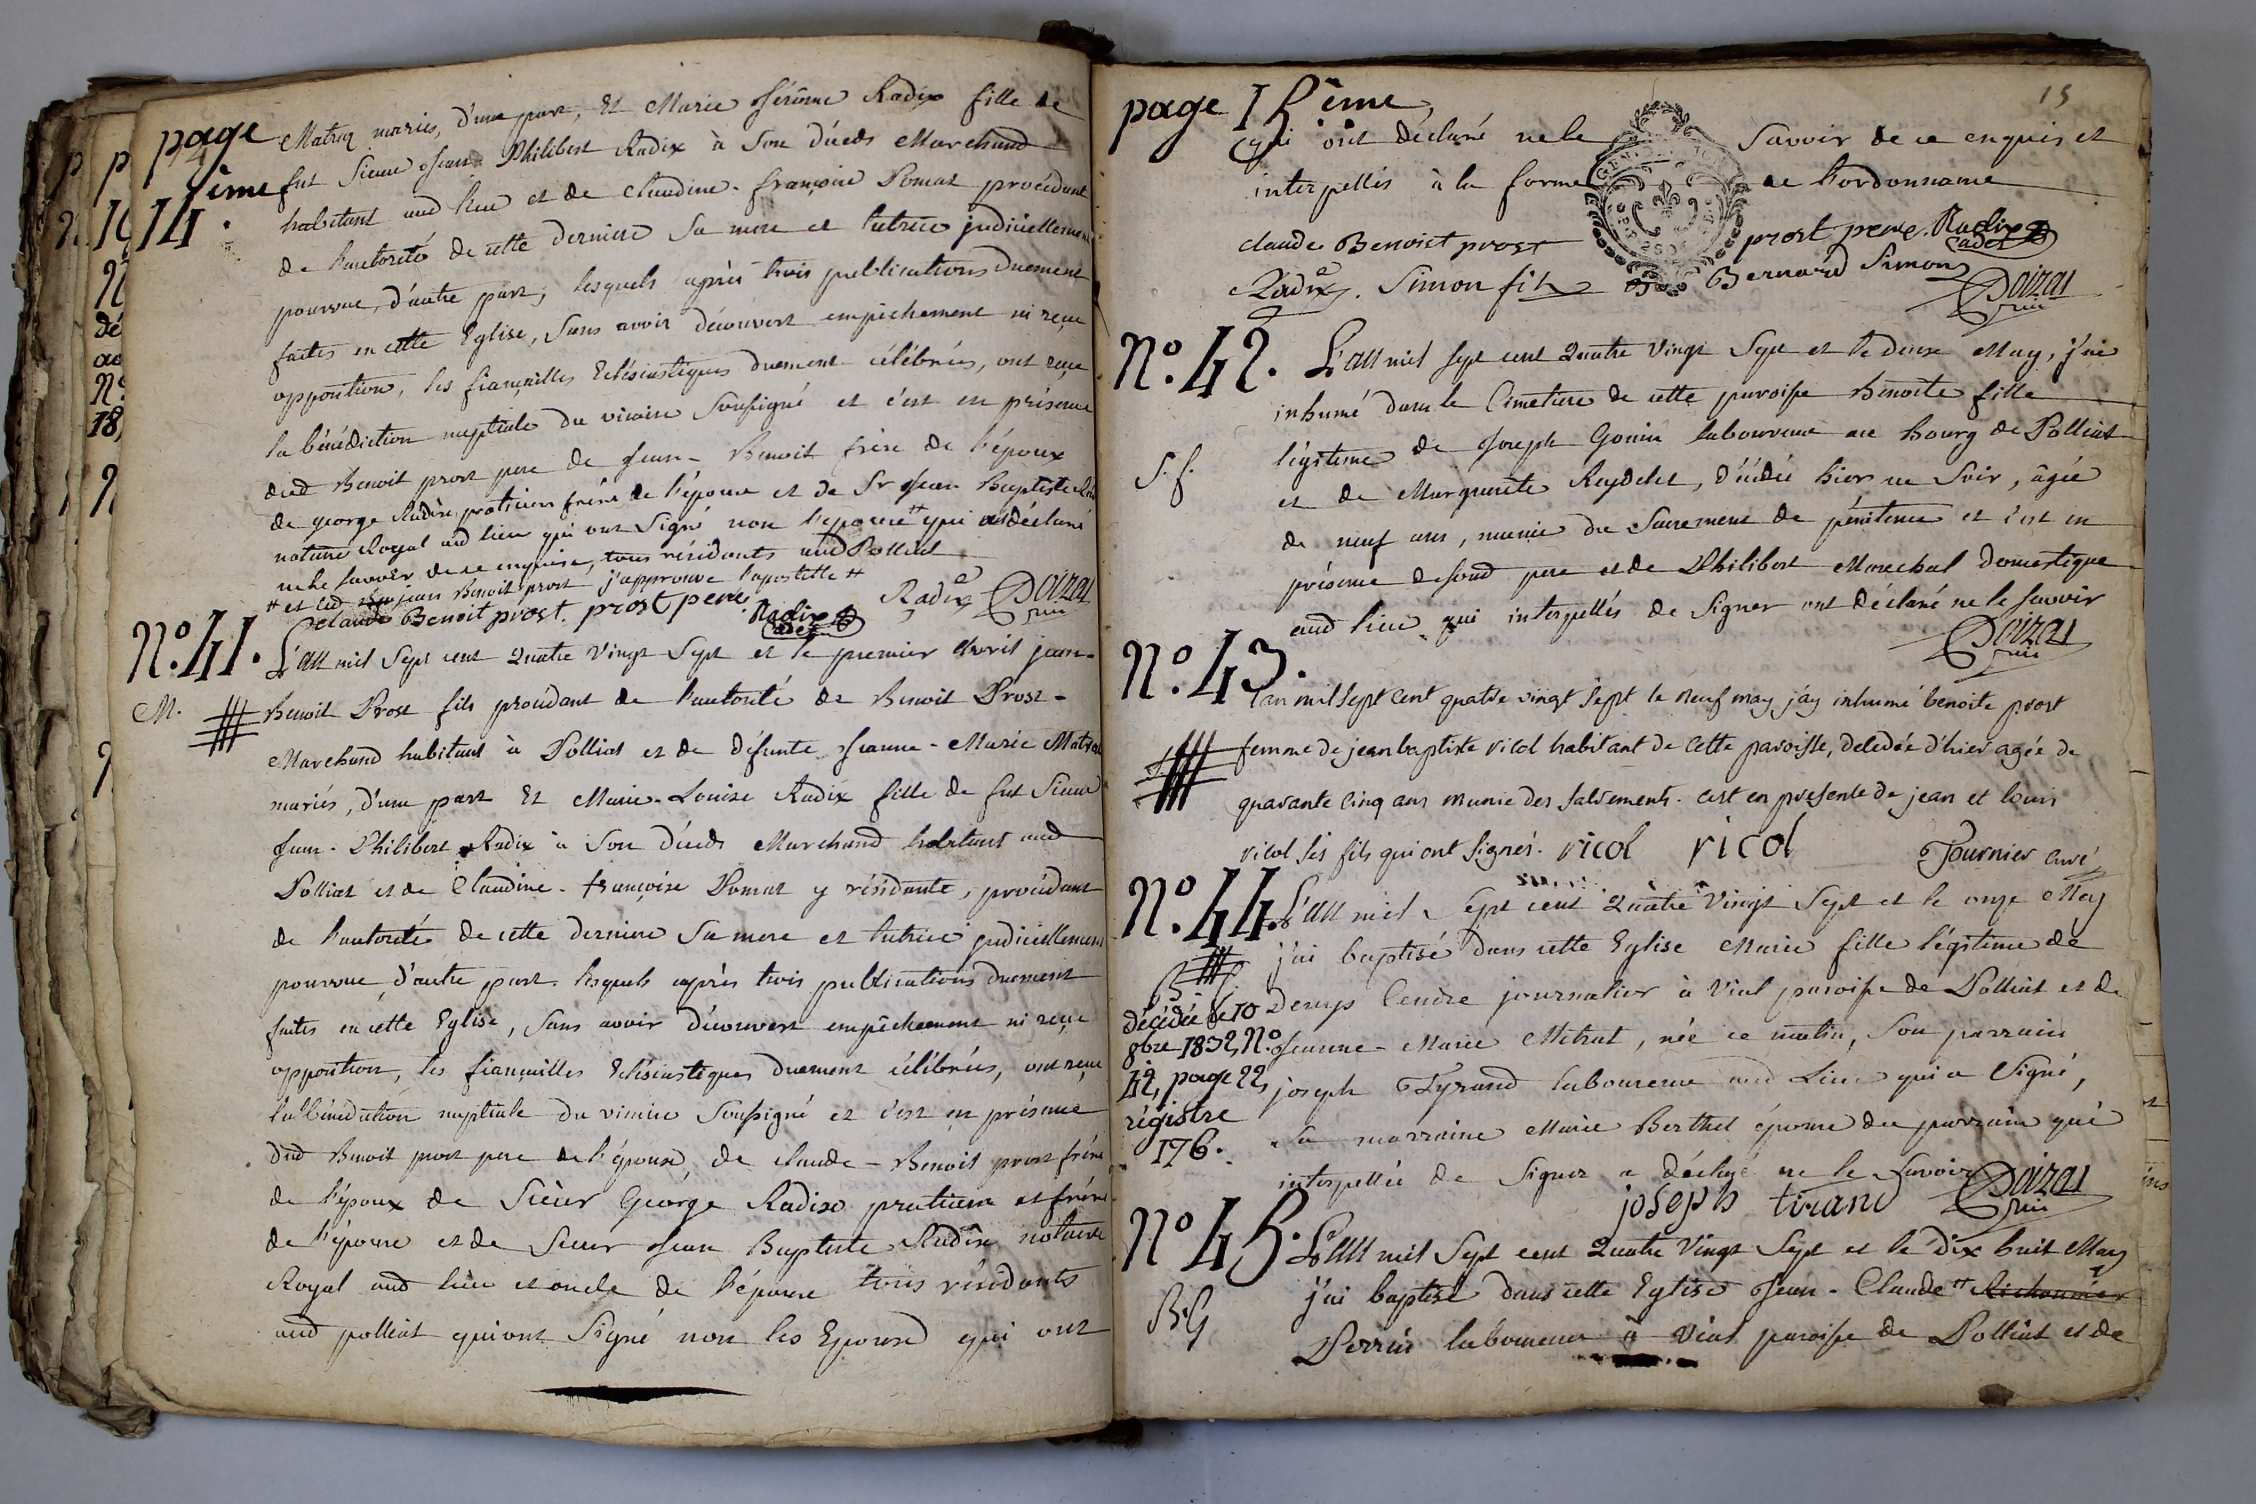 page
14.ème
Matraz mariés, d'une part, Et Marie Jérôme Radix fille de
fut Sieur Jean Philibert Radix à Son décès Marchand
habitant aud lieu et de Claudine-françoise Pomat procédant
de l'autorité de cette derniere Sa mere et tutrice judiciellement
pourvue, d'autre part, lesquels après trois publications duement
faites en cette Eglise, Sans avoir découvert empêchement ni reçu
opposition, les fiançailles Eclésiastiques duement célébrées, ont reçu
la bénédiction nuptiale du vicaire Soussigné et c'est en présence
dud Benoit prost pere de Jean-Benoit frère de l'époux
de george Radix praticien frère de l'épouse et de Sr Jean Baptiste
notaire Royal aud lieu qui ont Signé non l'epouse++ qui a déclaré
ne le Savoir de ce enquise, tous résidants aud Polliat
++ et led jean Benoit prost j'approuve l'apostille ++
claude Benoit prost. prost pere. Radix cadet Radix Doizat vic
N°. 41. L'an mil Sept cent Quatre Vingt Sept et le premier Avril jean-
M. Benoit Prost fils procédant de l'autorité de Benoit Prost-
Marchand habitant à Polliat et de défunte Jeanne-Marie Matraz
mariés, d'une part Et Marie-Louise Radix fille de fut Sieur
Jean-Philibert Radix à Son décès Marchand habitant aud
Polliat et de Claudine-françoise Pomat y résidante, procédant
de l'autorité de cette derniere Sa mere et tutrice judiciellement
pourvue, d'autre part. lesquels après trois publications duement
faites en cette Eglise, Sans avoir découvert empêchement ni reçu
opposition, les fiançailles Eclésiastiques duement célébrées, ont reçu
la bénédiction nuptiale du vicaire Soussigné et c'est en présence
dud Benoit prost pere de l'époux, de claude-Benoit prost frère
de l'époux de Sieur George Radix praticien et frère
de l'épouse et de Sieur Jean Baptiste Radix notaire
Royal aud lieu et oncle de l'épouse tous résidants
aud polliat qui ont Signé non les Epoux qui ont
page 15ème
15
qui ont déclaré ne le Savoir de ce enquis et
interpellés à la forme de l'ordonnance
claude Benoist prost prost pere. Radix cadet
Radix. Simon fils Bernard Simon Doizat vic
N°. 42. L'an mil Sept cent Quatre Vingt Sept et le deux May, j'ai
inhumé dans le Cimetiere de cette paroisse Benoite fille
S. f. légitime de Joseph Gonin laboureur au bourg de Polliat
et de Marguerite Reydelet, décédée hier au Soir, âgée
de neuf ans, munie du Sacrement de pénitence et c'est en
présence de Sond pere et de Philibert Marechal domestique
aud lieu qui interpellés de Signer ont déclaré ne le Savoir
Doizat vic
N°. 43.
L'an mil Sept Cent quatre vingt Sept le neuf may j'ay inhumé benoite prost
femme de jean baptiste ricol habitant de Cette paroisse, décédée d'hier agée de
quarante Cinq ans munie des Sacrements. C'est en presence de jean et louis
ricol Ses fils qui ont Signés. ricol ricol Tournier Curé
N°. 44. L'an mil Sept cent Quatre Vingt Sept et le onze May
j'ai baptisé dans cette Eglise Marie fille légitime de
décédée le 10 Denys Cendre journalier à Vial paroisse de Polliat et de
9bre 1832, N° Jeanne-Marie Metrat, née ce matin, Son parrain
42, page 22, joseph Tyrand laboureur aud Lieu qui a Signé,
régistre
176. La marraine Marie Berthet épouse du parrain qui
interpellée de Signer a déclaré ne le Savoir
joseph tirand Doizat vic
N° 45. L'an mil Sept cent Quatre Vingt Sept et le dix huit May
B.G j'ai baptisé dans cette Eglise Jean-Claude ++ Richonnier
Perrin laboureur à Vial paroisse de Polliat et de